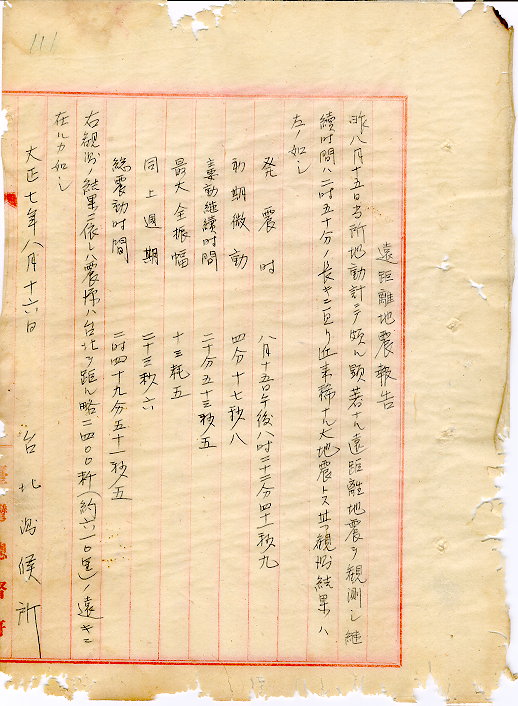 111
遠距離地震報告
昨八月十五日当所地動計ニテ頗ル顕著ナル遠距離地震ヲ観測シ継
続时間ハ二时五十分ノ長キニ亘リ近来稀ナル大地震トス其ノ観測結果ハ
左ノ如シ
発震时 八月十五日午後八时二十二分四十一秒九
初期微動 四分十七秒八
主要動継続时間 二十分五十三秒五
最大全振幅 十三粍五
同上週期 二十三秒六
総震動时間 二时四十九分五十一秒五
右観測ノ結果ニ依レハ震源ハ台北ヲ距ル略二四〇〇粁(約六一〇里)ノ遠キニ
在ルカ如シ
大正七年八月十六日
台北測候所
臺灣總督府